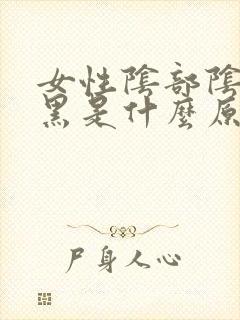 女性陰部陰
黑是什麼原
尸身人心